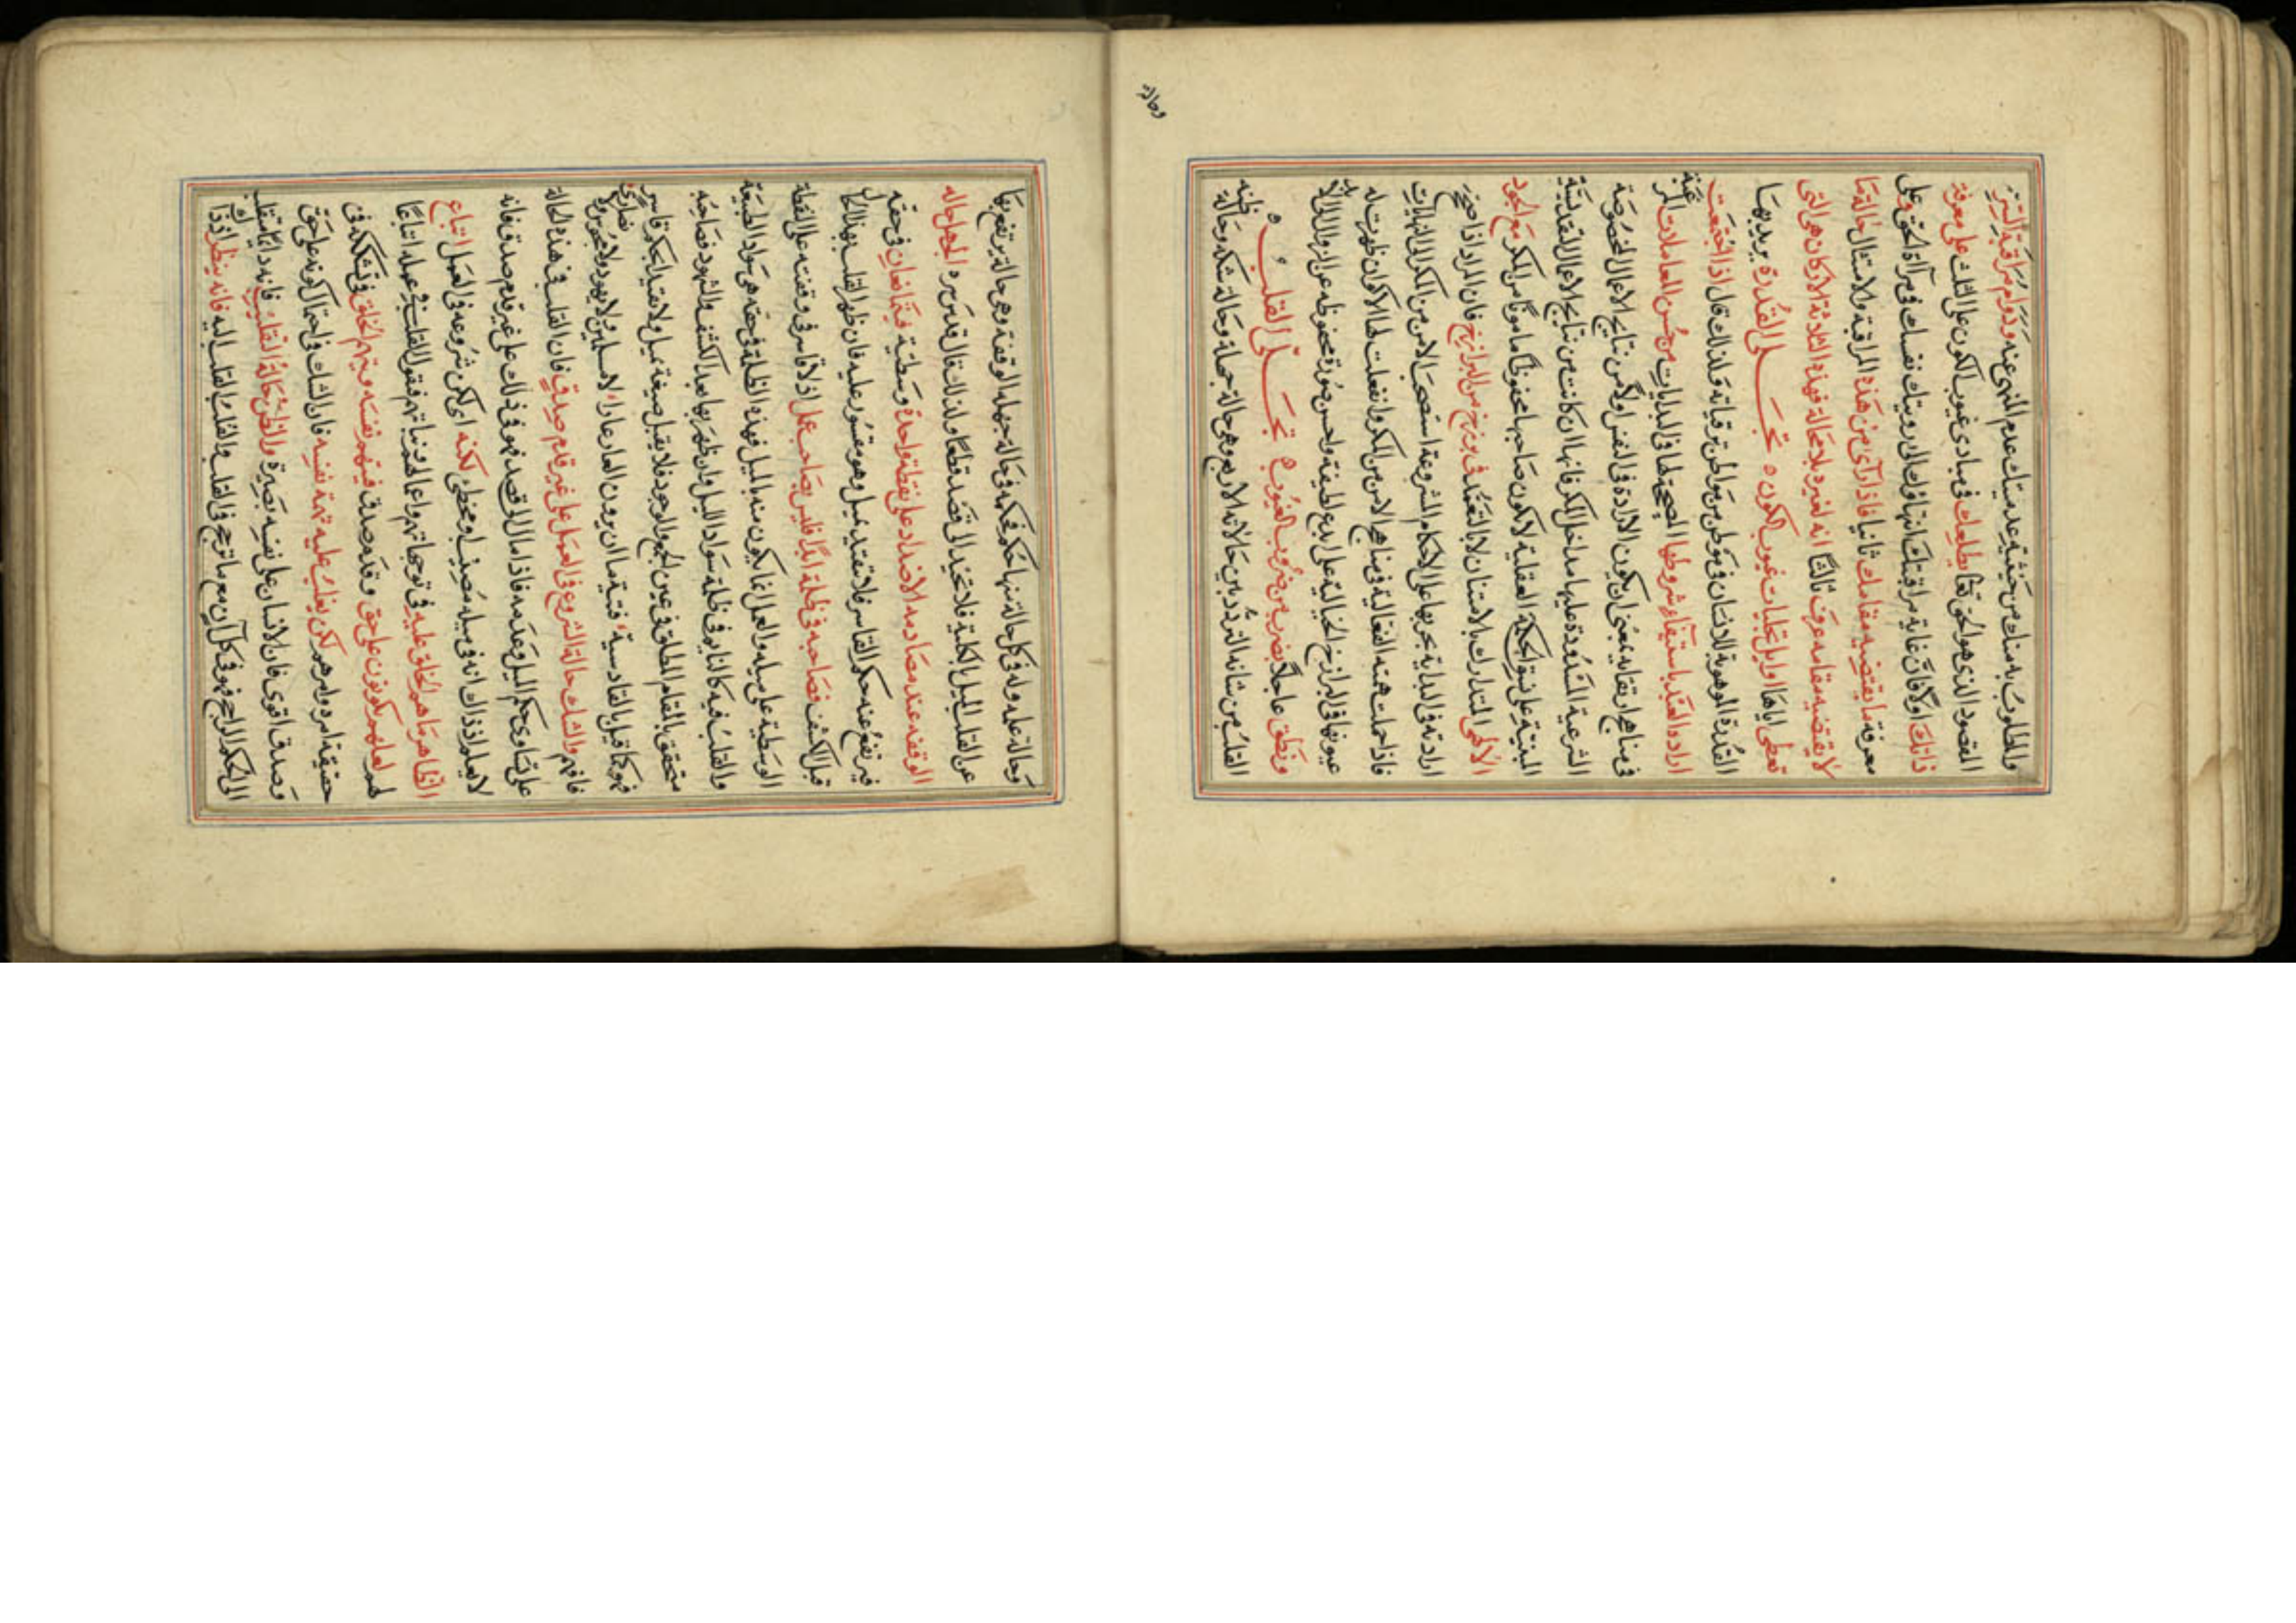 والمطلوب به منك من حيثية عدميتك عدم المنهى عنه ودوام مراقبة السر
المقصود الذى هو الحق تعا يطلعك فى مبادى غيوب الكون على الثلث على معرفة
ذاتك اولا فان غاية مراقبتك انتهاؤك الى رويتك نفسك فى مرآة الحق وعلى
معرفة ما يقتضيه مقامك ثانيا فاذا رآى من هذه المراقبة والامتثال حالة ما
لا يقتضيه مقامه عرف ثالثا انه لغيره لا محالة فهذه الثلاثة الاركان هى التى
تعطى اياها اوايل تجليات غيوب الكون ه تجلى القدرة يريد بها
القدرة الموهوبة للانسان فى موطن من مواطن ترقياته ولذلك قال اذا اجتمعت
ارادة العبد باستيفاء شروطها الصحيحة لها فى البدايات من حسن المعاملات الـ
فى مناهج ارتقايه بمعنى ان يكون الارادة فى النفس اولا من نتايج الاعمال المخصوصة
الشرعية المسدودة عليها مداخل المكر فانها ان كانت من نتايج الاعمال التقديسية
المبنية على نسق الحكمة العقلية لا يكون صاحبها محفوظا مامونا من المكر مع الجود
الالهى المتدارك بالامتنان لا بالتعمد فى برزخ من البرازخ فان المراد اذا صحت
ارادته فى البداية بجريها على الاحكام المشروعة استصحب الامن من المكر الى النهايات
فاذا حملت همته الفعالية فى مناهج الامن من المكر وانفعلت لها الاكوان ظهرت له
عيونها فى البرازخ الخيالية على ابدع لطيفة واحسن صورة محفوظة عن الزوال والابد
ونطق عاجلا بضرب من ضروب الغيوب ه تجلى القلب ه
القلب من شانه التردد بين حالاته الاربع وهى حالة جهله وحالة شكه وحالة ظنه
وحالة علمه وله فى كل حالة منها حكم فحكمه فى حالة جهله الوقفة وهى حالة يرتفع بها
عن القلب الميل بالكلية فلا تحيد الى قصد قطعا ولذلك قال قدس سره الجهل حاله
الوقفة عند مصادمة الاضداد على نقطة واحدة وسطية فيتمانعان فى حقه
فيرتفع عنه حكم القاسر فلا يتقيد بميل وهو مقسور عليه فان ظهر القلب بهذا الحال
قبل الكشف فصاحبه فى ظلمة ابدا فليس بصاحب عمل اذ لا قاسر فى وقفته على النقطة
الوسطية على ميله والعمل انما يكون منه بالميل فهذه الظلمة فى حقه هى سواد الطبيعة
والقلب فيه كالنايم فى ظلمة سواد الليل وان ظهر بها بعد الكشف والشهود فصاحبه
متحقق بالمقام المطلق فى عين الجمع والوجود فلا يقبل صبغة بميل ولا تقييدا بحكم قاسر
فهو كما قيل بالفارسية فتية ما ان يرون العار عارا لا مسلمين ولا يهود ولا مجوس ولا نصارى
فافهم والشك حالة الشروع فى العمل على غير قدم صدق فان القلب فى هذه الحالة
على تساوى حكم الميل وعدمه فاذا مال الى قصد فهو فى ذلك على غير قدم صدق فانه
لا يعلم اذ ذاك انه فى ميله مصيب او مخطئ لكنه اى لكن شروعه فى العمل اتباع
الظاهر ما هم الخلق عليه فى توجهاتهم واعمالهم ونياتهم فيقول القلب فى عمله اتباعا
لهم لعلهم يكونون على حق وقدم صدق فيتهم نفسه ويتهم الخلق فى شكه فى
حقيقة امره وامرهم لكن يغلب عليه تهمة نفسه فان الشك فى احتمال كونه على حق
وصدق اقوى فان الانسان على نفسه بصيرة والظن حالة القلب فانه دايما يتقلب
الى الحكم الراجح فهو فى كل آن مع ما ترجح فى القلب والقلب ابدا اليه فانه ينظر اذ ذاك